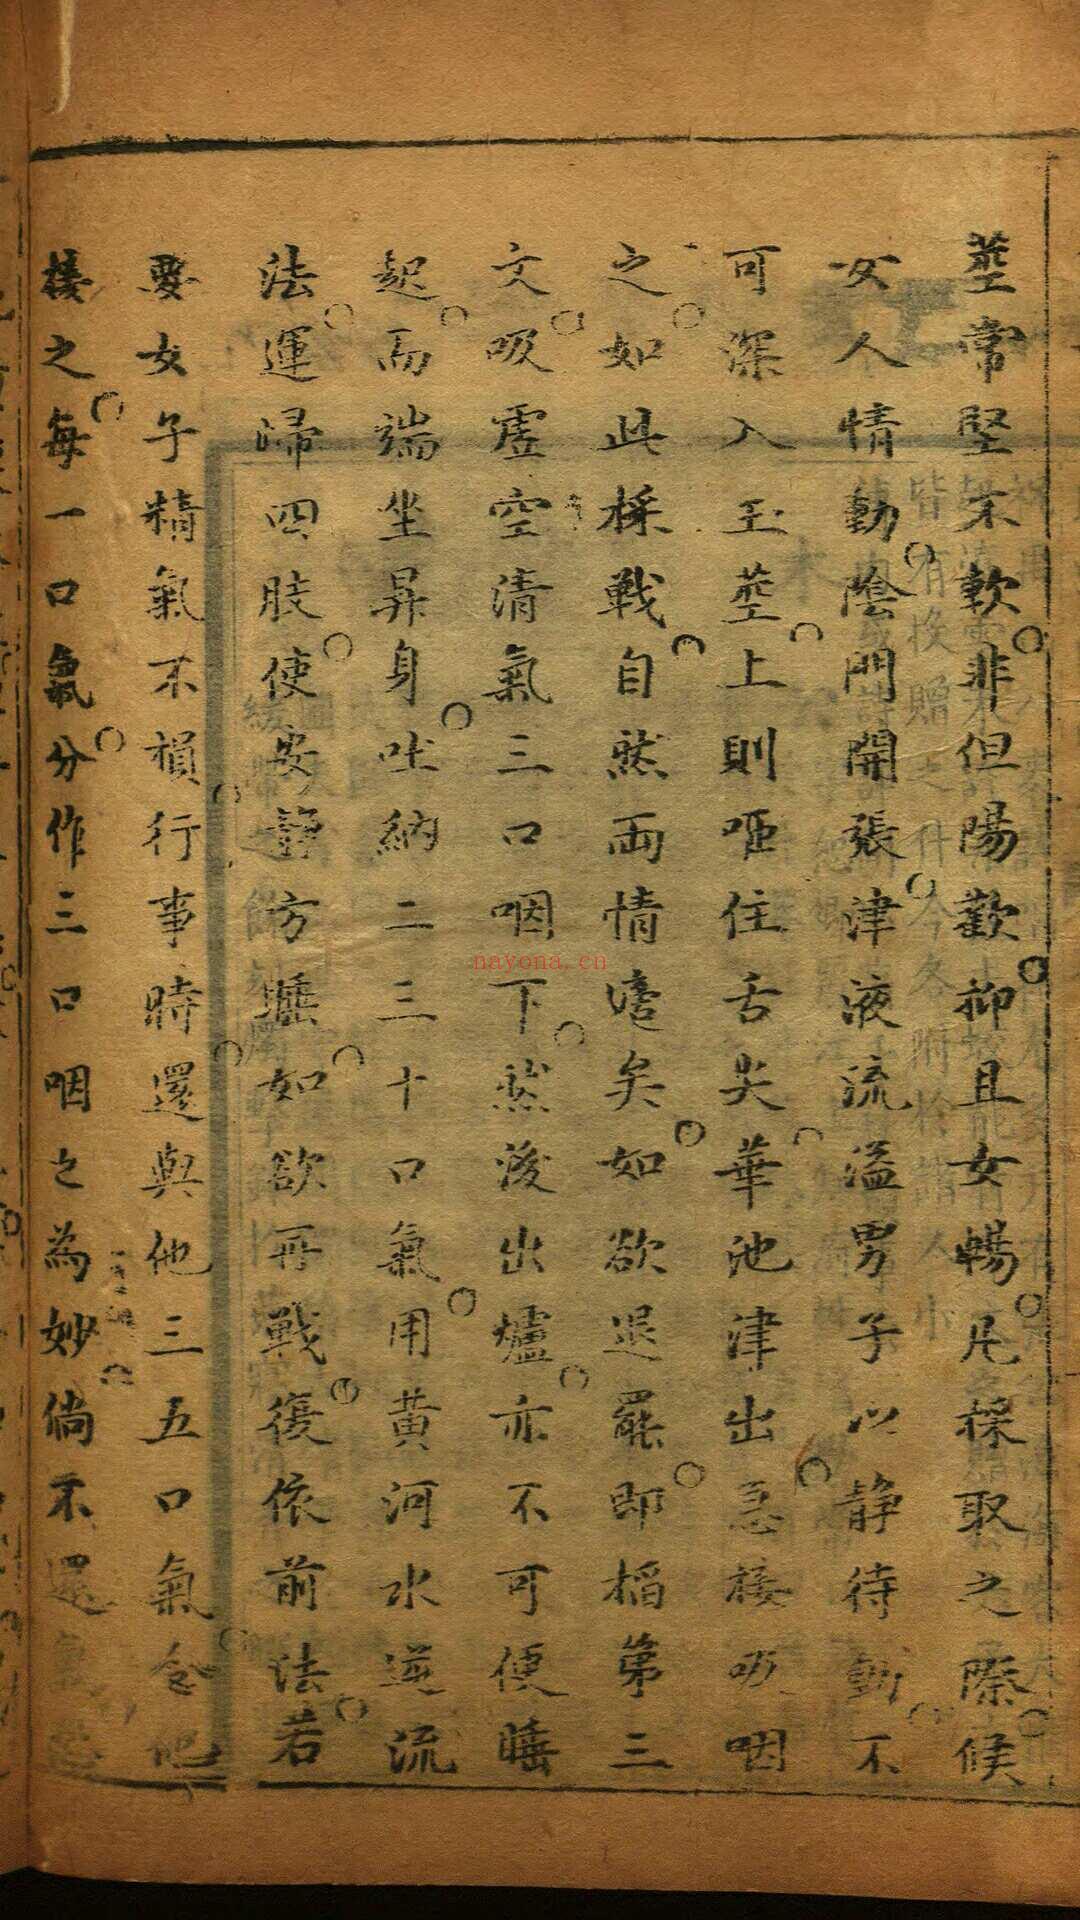 莖常堅不軟非但陽歡抑且女暢凡採取之際候
女人情動陰門開張津液流溢男子以静待動不
可深入玉莖上則咂住舌尖華池津出急接吸咽
之如此採戰自然兩情濃矣如欲退罷即稻第三
文吸虛空清氣三口咽下然後出爐亦不可便睡
起而端坐昇身吐納二三十口氣用黄河水逆流
法運歸四肢使安静方睡如欲再戰復依前法若
要女子精氣不損行事時還與他三五口氣令他
接之每一口氣分作三口咽之為妙倘不還
nayona.cn